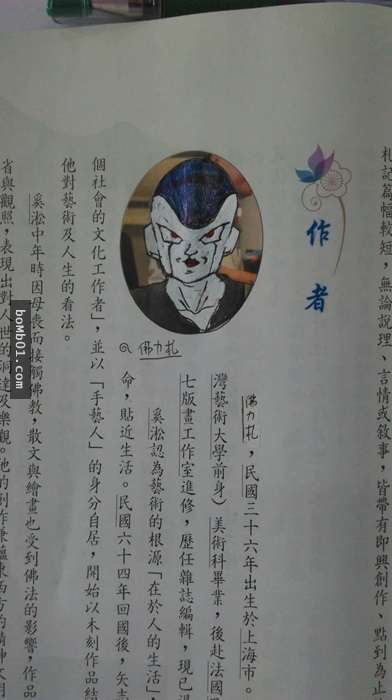 札記篇幅較短，無論說理、言情或敘事，皆帶有即興創作、點到為
作者
佛力札，民國三十六年出生於上海市。
灣藝術大學前身）美術科畢業，後赴法國
七版畫工作室進修，歷任雜誌編輯，現已
奚淞認為藝術的根源「在於人的生活」，
命，貼近生活。民國六十四年回國後，矢志
@佛力札
個社會的文化工作者」，並以「手藝人」的身分自居，開始以木刻作品結
他對藝術及人生的看法。
奚淞中年時因母喪而接觸佛教，散文與繪畫也受到佛法的影響，作品
省與觀照，表現出對人世的洞達及樂觀。他的創作兼融東西方的精神文
boMb01.com